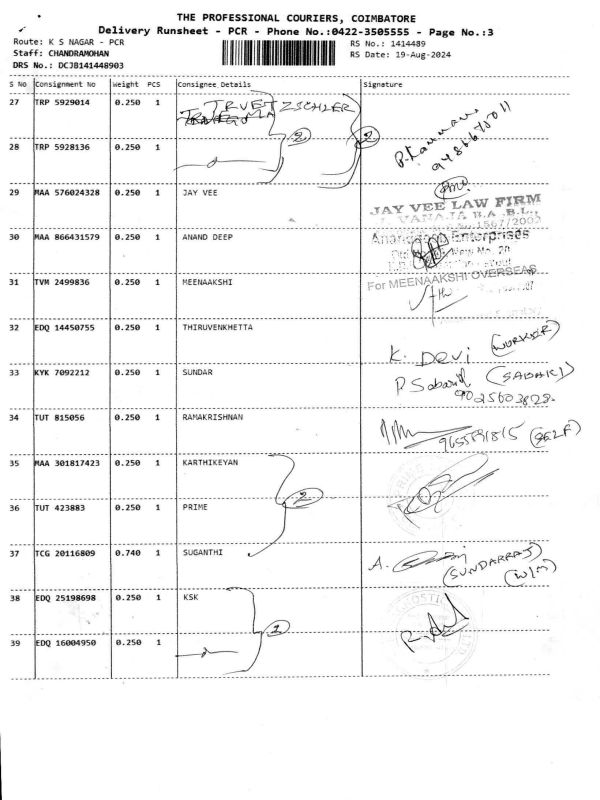 THE PROFESSIONAL COURIERS, COIMBATORE
Delivery Runsheet - PCR - Phone No.:0422-3505555 - Page No.:3
Route: K S NAGAR - PCR
Staff: CHANDRAMOHAN
DRS No.: DCJB141448903
RS No.: 1414489
RS Date: 19-Aug-2024
S No Consignment No Weight PCS Consignee Details Signature
27 TRP 5929014 0.250 1 TRUETZSCHLER
28 TRP 5928136 0.250 1
29 MAA 576024328 0.250 1 JAY VEE
JAY VEE LAW FIRM
J. VANAJA B.A.,B.L.,
30 MAA 866431579 0.250 1 ANAND DEEP
Ananddeep Enterprises
31 TVM 2499836 0.250 1 MEENAAKSHI
For MEENAAKSHI OVERSEAS
32 EDQ 14450755 0.250 1 THIRUVENKHETTA
K. Devi (WORKER)
33 KYK 7092212 0.250 1 SUNDAR
9025603828.
34 TUT 815056 0.250 1 RAMAKRISHNAN
(SELF)
35 MAA 301817423 0.250 1 KARTHIKEYAN
2
36 TUT 423883 0.250 1 PRIME
37 TCG 20116809 0.740 1 SUGANTHI
A.
(SUNDARRAJ)
(W/M)
38 EDQ 25198698 0.250 1 KSK
39 EDQ 16004950 0.250 1